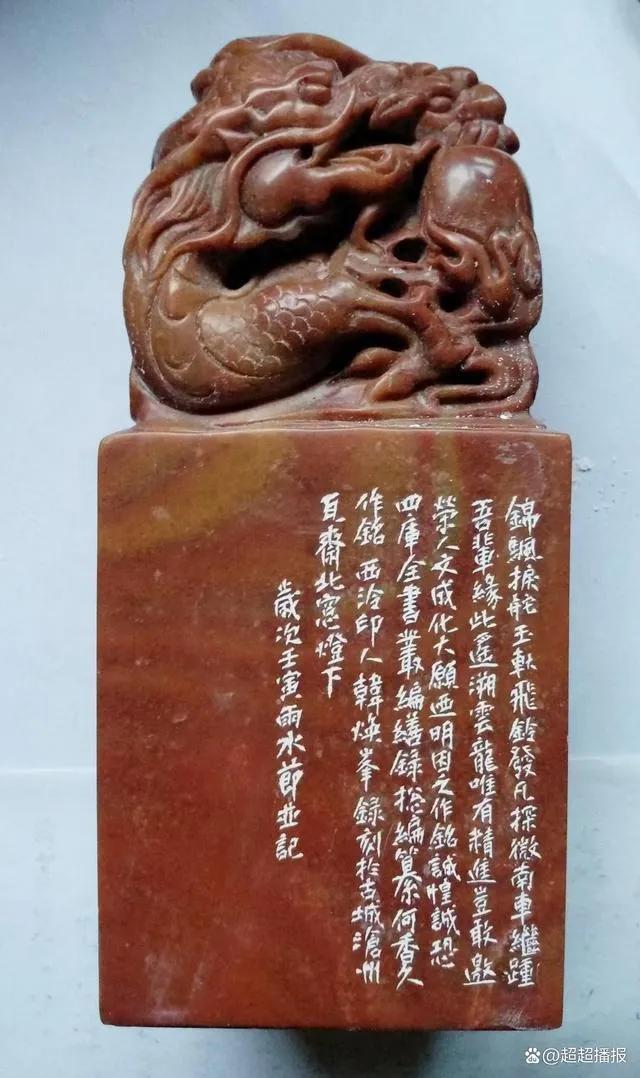 錦颿捩舵玉軑飛鈴發凡探微南車繼踵
吾輩緣此遥溯雲龍唯有精進豈敢邀
榮人文成化大願亟明因之作銘誠惶誠恐
四庫全書叢編繕錄總編纂何香久
作銘西泠印人韓煥峯錄刻於古城滄州
瓦齋北窻燈下
歲次壬寅雨水節並記
@超超播报